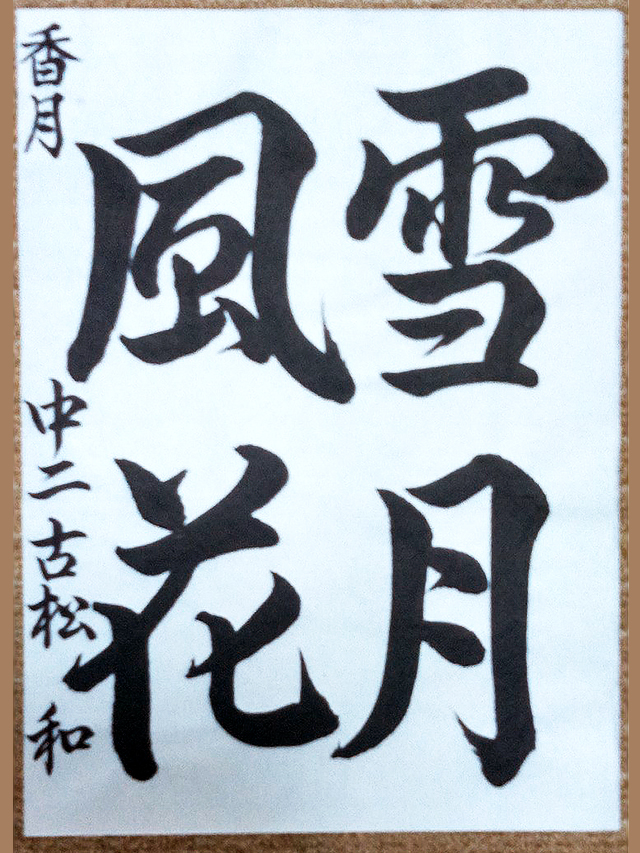 雪月
風花
香月 中二 古松 和